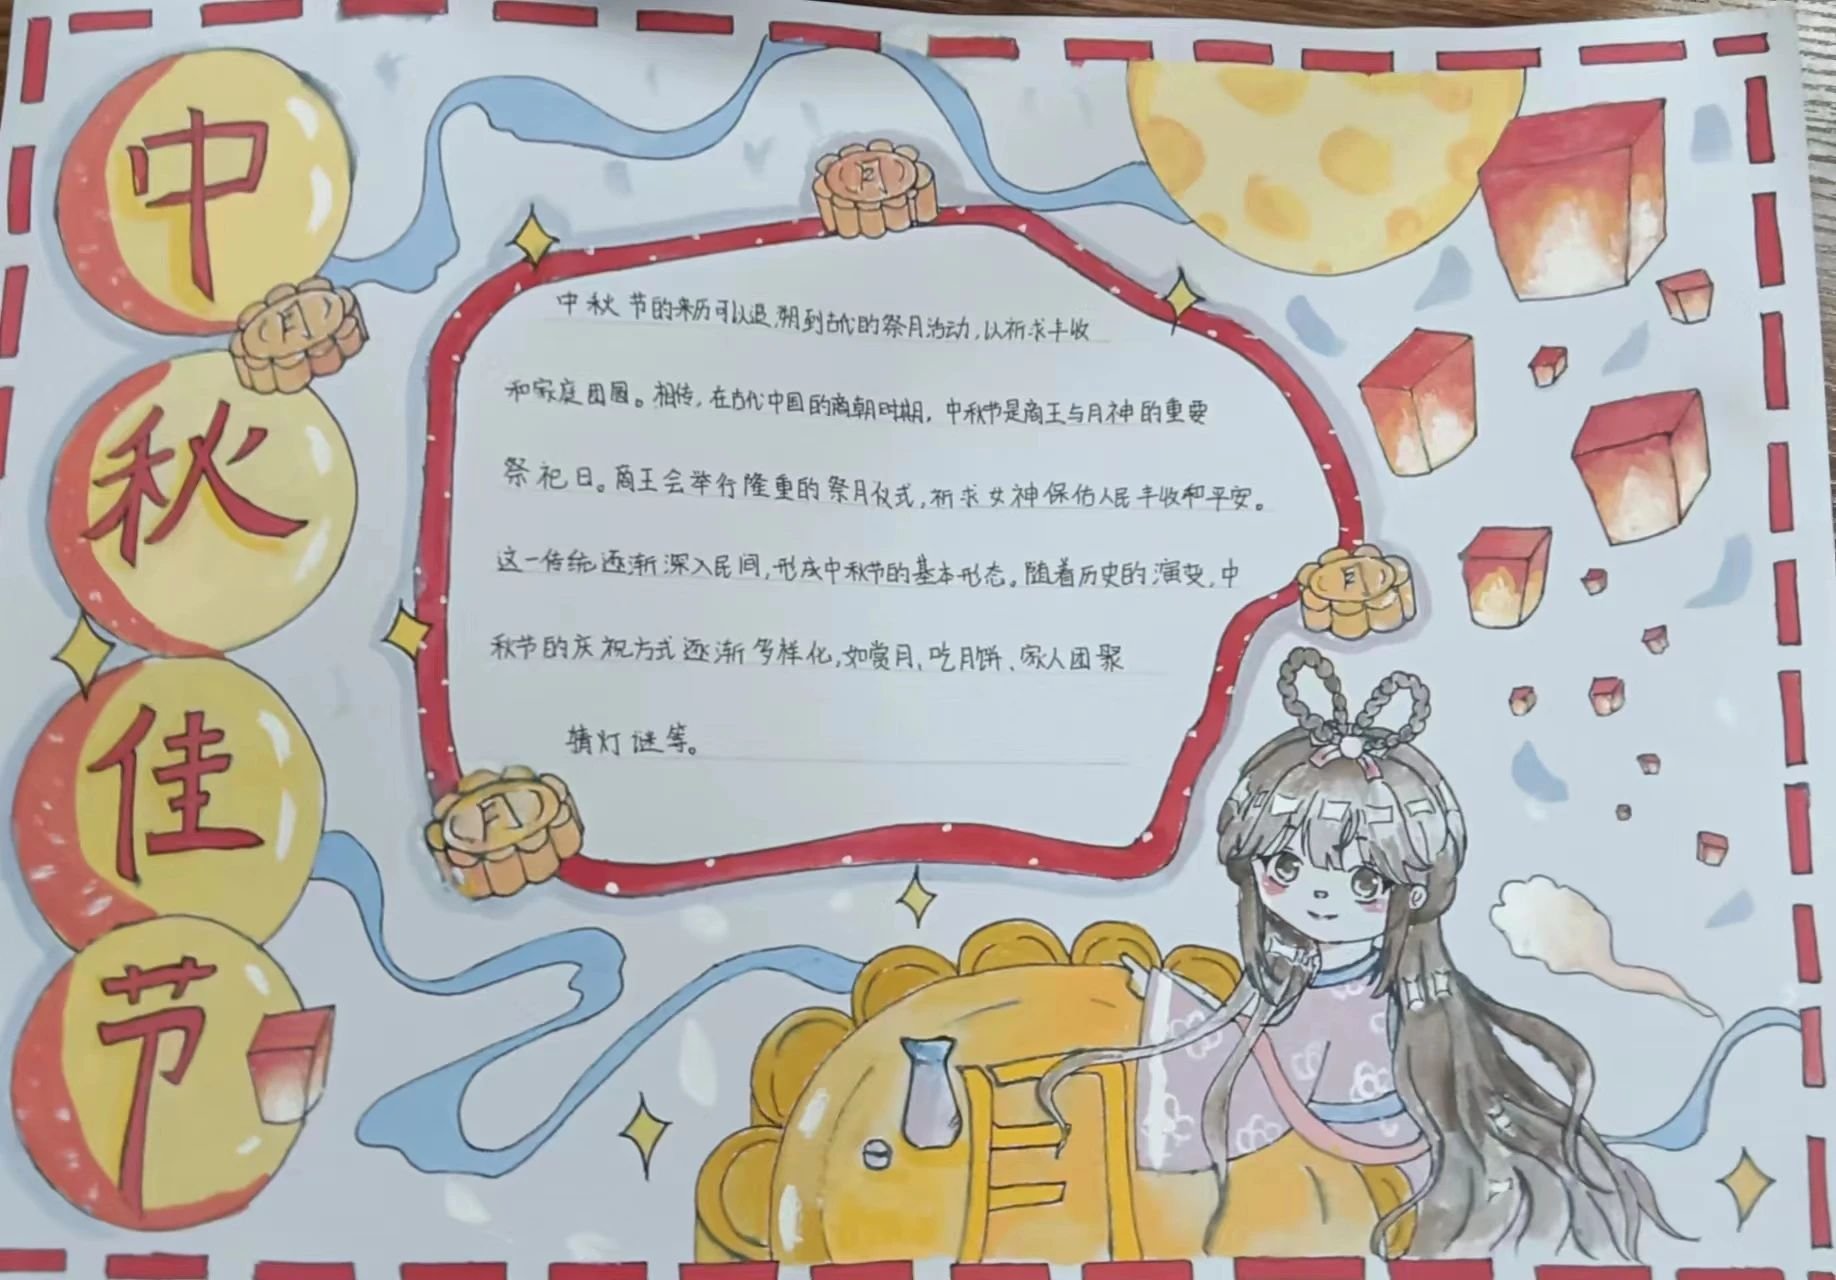 中秋佳节
中秋节的来历可以追朔到古代的祭月活动，以祈求丰收
和家庭团圆。相传，在古代中国的商朝时期，中秋节是商王与月神的重要
祭祀日。商王会举行隆重的祭月仪式，祈求女神保佑人民丰收和平安。
这一传统逐渐深入民间，形成中秋节的基本形态。随着历史的演变，中
秋节的庆祝方式逐渐多样化，如赏月、吃月饼、家人团聚
猜灯谜等。
月
月
月
月
月